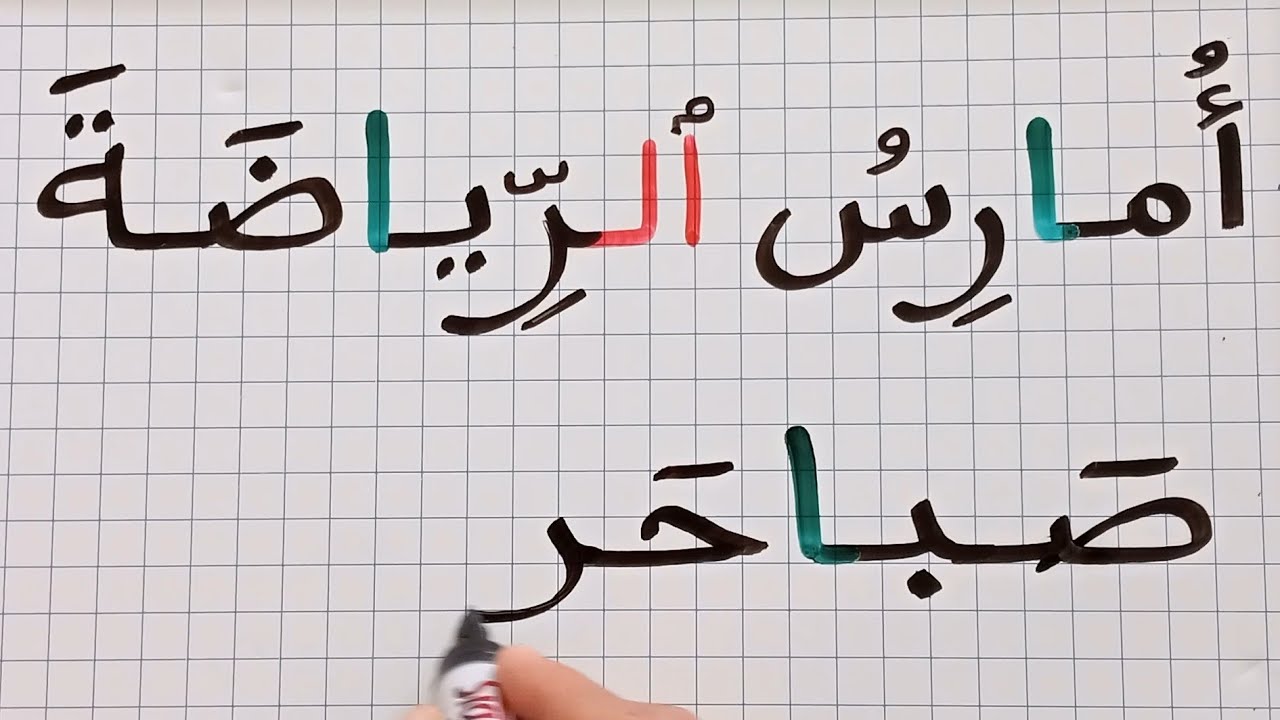 أُمارِسُ ٱلرِّياضَةَ
صَباحَر